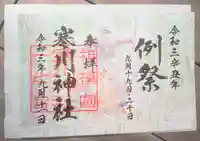 令和三辛丑年
例祭
九月十九日・二十日
奉拝
寒川神社
令和三年九月二十日